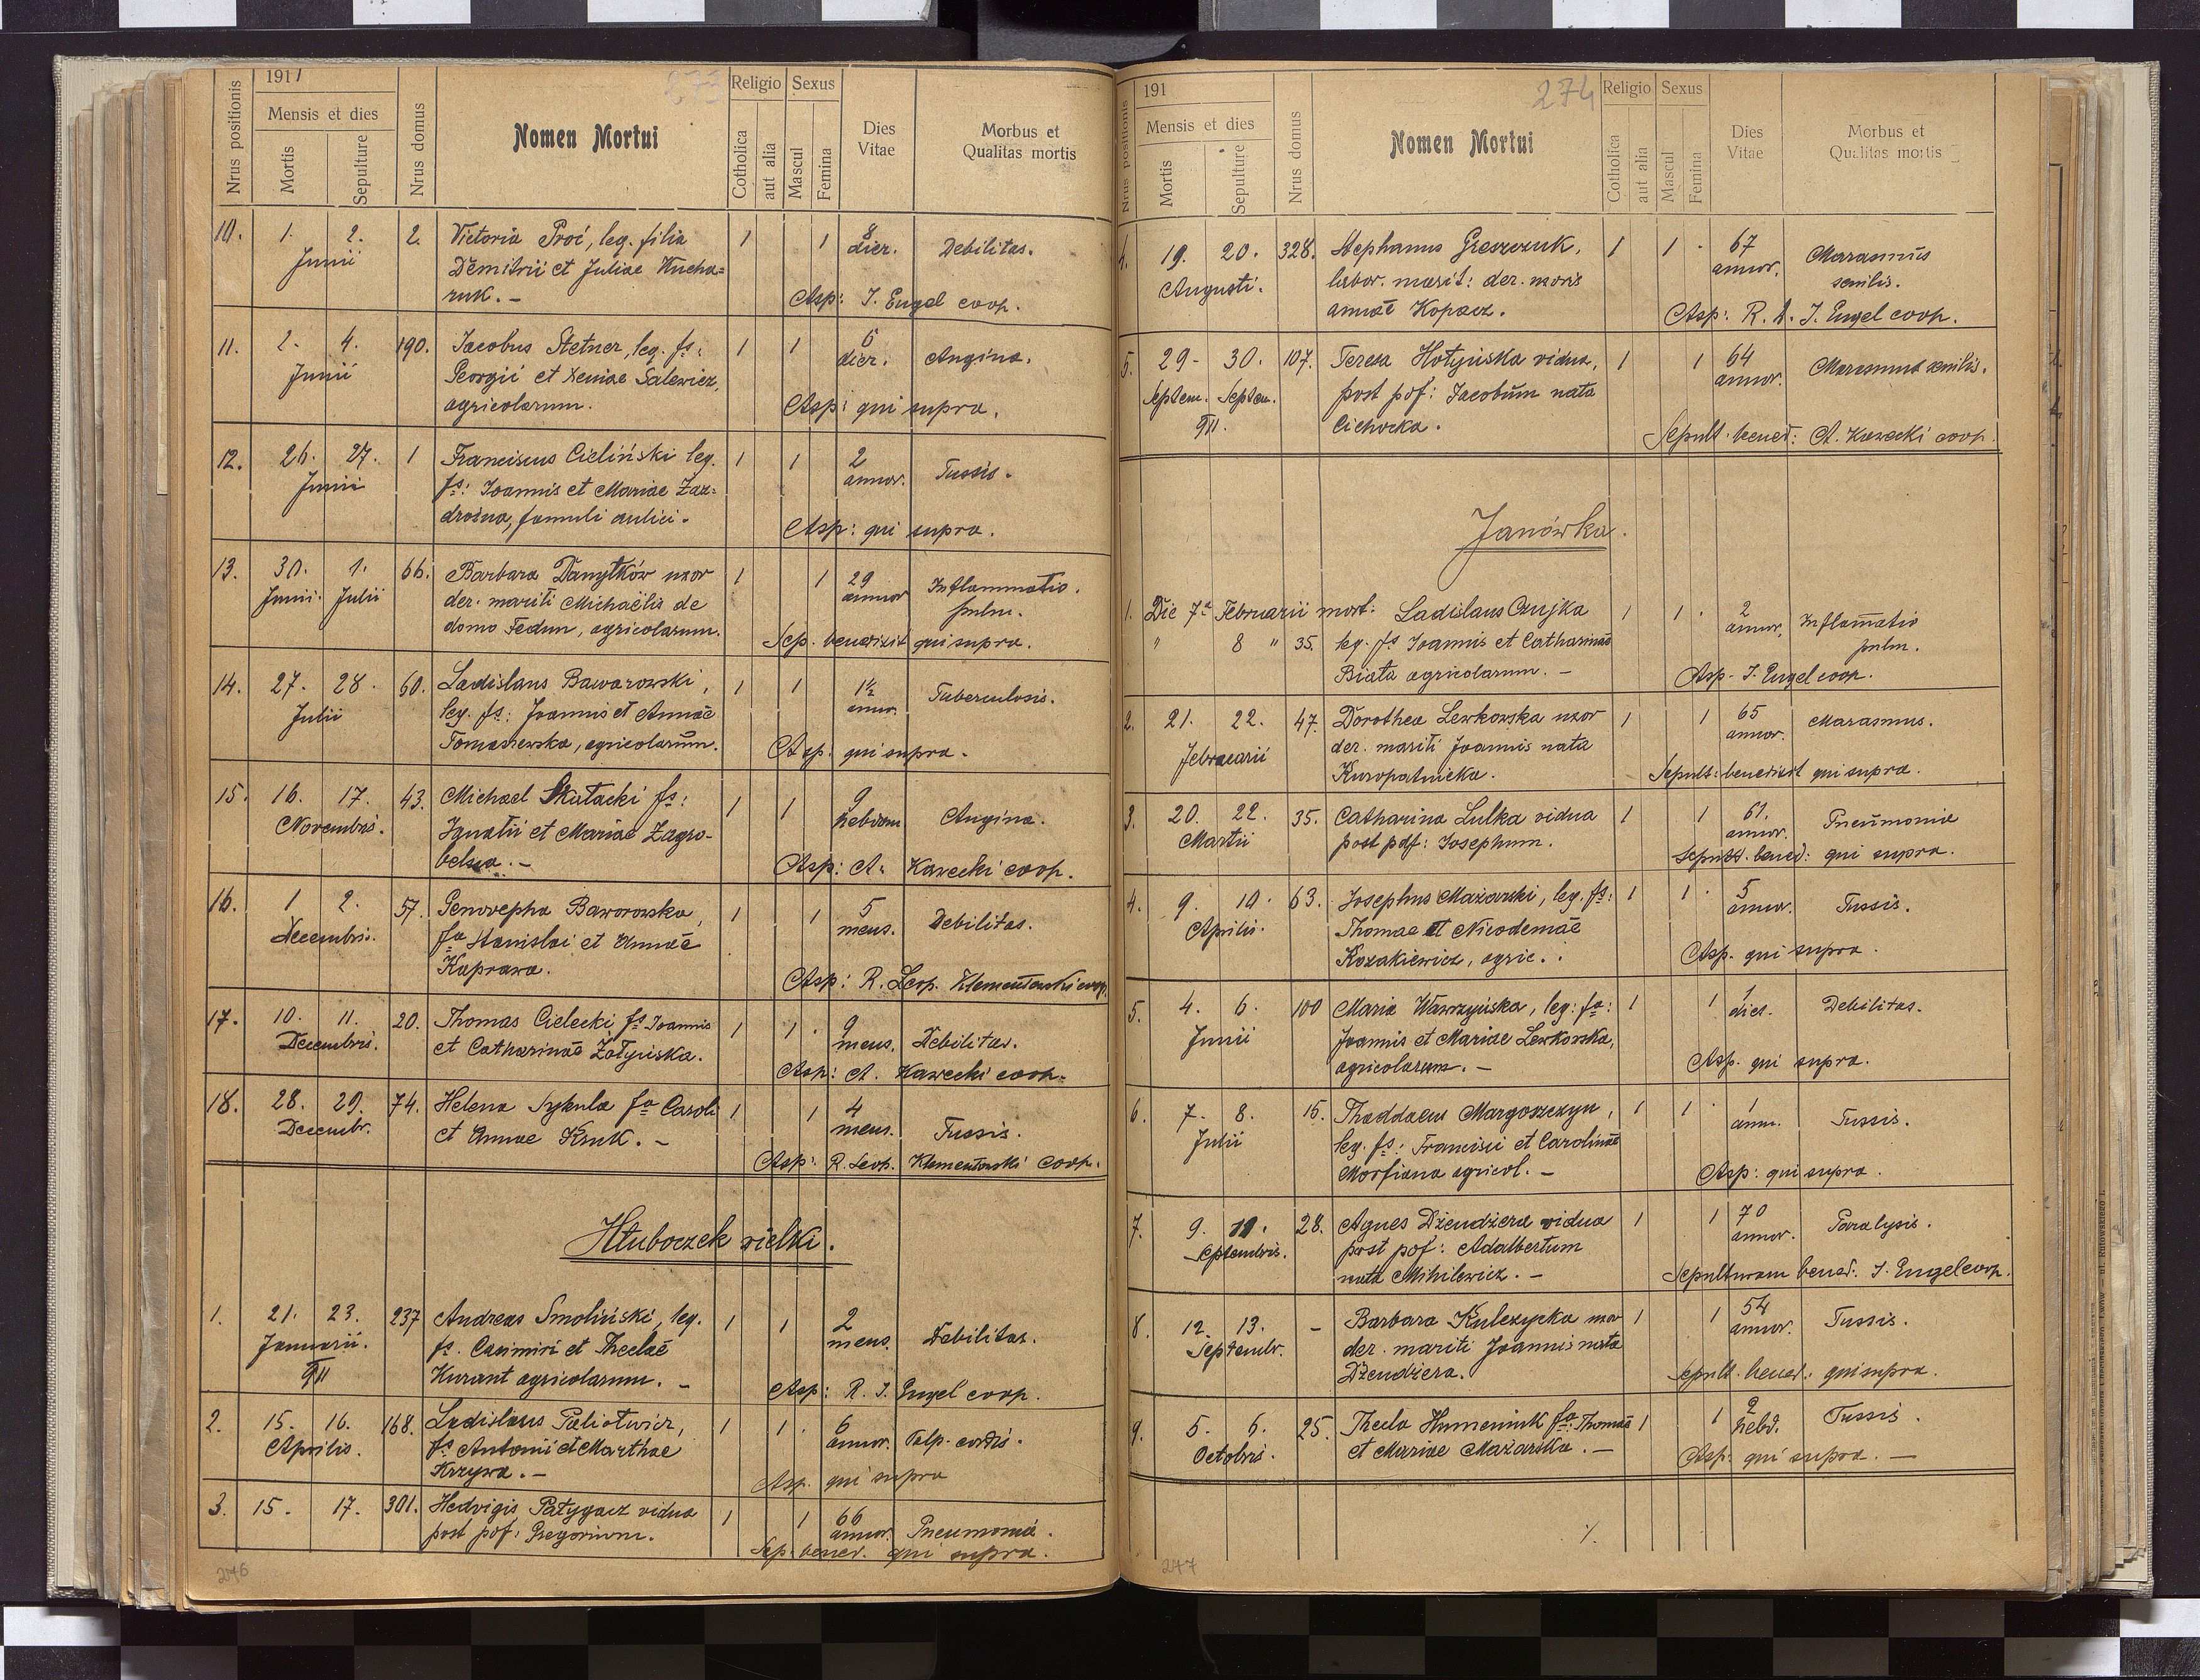 1911
273
Nrus positionis
Mensis et dies
Mortis
Sepulture
Nrus domus
Nomen Mortui
Religio
Cotholica
aut alia
Sexus
Mascul
Femina
Dies Vitae
Morbus et Qualitas mortis
10. 1. 2. 2. Victoria Proć, leg. filia 1 1 8 Debilitas.
Junii Demitrii et Juliae Kucha= dier.
ruk. – Asp: J. Engel coop.
11. 2. 4. 190. Jacobus Stetner, leg. fs: 1 1 6 Angina.
Junii Georgii et Xeniae Salewicz, dier.
agricolarum. Asp: qui supra.
12. 26. 27. 1 Franciscus Cieliński leg. 1 1 2 Tussis.
Junii fs: Joannis et Mariae Zaz= annor.
drośna, famuli aulici. Asp: qui supra.
13. 30. 1. 66. Barbara Danytków uxor 1 1 29 Inflammatio
Junii. Julii der. mariti Michaëlis de annor pulm.
domo Fedun, agricolarum. Sep. benedixit qui supra.
14. 27. 28. 60. Ladislaus Baworowski, 1 1 1½ Tuberculosis.
Julii leg. fs: Joannis et Annae annor.
Tomaszewska, agricolarum. Asp: qui supra.
15. 16. 17. 43. Michael Skałacki fs: 1 1 9 Angina.
Novembris. Ignatii et Mariae Zagro- hebdom
belna. – Asp: A. Kawecki coop.
16. 1 2. 57. Genovepha Baworowska, 1 1 5 Debilitas.
Decembris. fa Stanislai et Annae mens.
Kaprawa. Asp: R. Leop. Klementowski coop.
17. 10. 11. 20. Thomas Cielecki fs Joannis 1 1 9 Debilitas.
Decembris. et Catharinae Żołyńska. mens.
Asp: A. Kawecki coop.
18. 28. 29. 74. Helena Sykula fa Caroli 1 1 4 Tussis.
Decembr. et Annae Kruk. – mens.
Asp: R. Leop. Klementowski coop.
Hłuboczek wielki.
1. 21. 23. 237 Andreas Smoliński, leg. 1 1 2 Debilitas.
Januarii. fs. Casimiri et Theclae mens.
911 Kurant agricolarum. – Asp: R. J. Engel coop.
2. 15. 16. 168. Ladislaus Paliotwicz, 1 1 6 Palp. cordis.
Aprilis. fs Antonii et Marthae annor.
Krzywa. – Asp. qui supra
3. 15. 17. 301. Hedvigis Patygacz vidua 1 1 66 Pneumonia.
post pdf: Gregorium. annor
Sep. bened. qui supra.
246
191
274
Nrus positionis
Mensis et dies
Mortis
Sepulture
Nrus domus
Nomen Mortui
Religio
Cotholica
aut alia
Sexus
Mascul
Femina
Dies Vitae
Morbus et Qualitas mortis
4. 19. 20. 328. Stephanus Greszczuk, 1 1 67 Marasmus
Augusti. labor. marit: der. uxoris annor. senilis.
Annae Kopacz. Asp: R. D. J. Engel coop.
5. 29. 30. 107. Teresa Hotyńska vidua, 1 1 64 Marasmus senilis.
Septem. Septem. post pdf: Jacobum nata annor.
911. Cichocka. Sepult. bened: A. Kawecki coop.
Janówka.
1. Die 7a Februarii mort: Ladislaus Czujka 1 1 2 Inflamatio
" 8 " 35. leg. fs Joannis et Catharinae annor. pulm.
Biała agricolarum. – Asp. J. Engel coop.
2. 21. 22. 47. Dorothea Lewkowska uxor 1 1 65 Marasmus.
Februarii der. mariti Joannis nata annor.
Kuropatnicka. Sepult: benedixit qui supra.
3. 20. 22. 35. Catharina Lulka vidua 1 1 61. Pneumonia
Martii post pdf: Josephum. annor.
Sepult. bened: qui supra.
4. 9. 10. 63. Josephus Mazarski, leg. fs: 1 1 5 Tussis.
Aprilis. Thomae et Nicodemae annor.
Kozakiewicz, agric. Asp. qui supra.
5. 4. 6. 100 Maria Wawrzyńska, leg: fa: 1 1 1 Debilitas.
Junii Joannis et Mariae Lewkowska, dies.
agricolarum. – Asp. qui supra.
6. 7. 8. 15. Thaddaeus Margoszczyn, 1 1 1 Tussis.
Julii leg. fs: Francisci et Carolinae ann.
Morfiana agricol. – Asp: qui supra.
7. 9. 11. 28. Agnes Dżendżera vidua 1 1 70 Paralysis.
Septembris. post pdf: Adalbertum annor.
nata Mihilewicz. – Sepulturam bened: J. Engel coop.
8. 12. 13. – Barbara Kulczycka uxor 1 1 54 Tussis.
Septembr. der. mariti Joannis nata annor.
Dżendżera. Sepult. bened: qui supra.
9. 5. 6. 25. Thecla Humeniuk fa: Thomae 1 1 2 Tussis.
Octobris. et Mariae Mazarska. – hebd.
Asp: qui supra. –
247